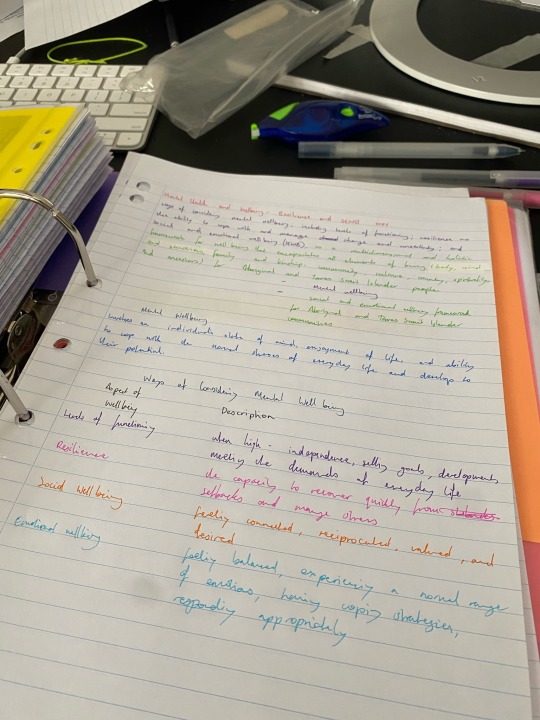 Mental Health and Wellbeing - Resilience and SEWB
ways of considering mental wellbeing, including levels of functioning; resilience as
the ability to cope with and manage change and uncertainty; and
social and emotional wellbeing (SEWB) multidimensional and holistic
framework for wellbeing that encapsulates all elements of being (body, mind
and emotions, family and kinship, community, culture, country, spirituality
and ancestors) for Aboriginal and Torres Strait Islander people
- Mental wellbeing
- social and emotional wellbeing framework
for Aboriginal and Torres Strait Islander
communities
Mental wellbeing
involves an individual's state of mind, enjoyment of life and ability
to cope with the normal stresses of everyday life and develop to
their potential.
Ways of Considering Mental Wellbeing
Aspect of
Wellbeing Description
Levels of functioning when high - independence, setting goals, development,
meeting the demands of everyday life
Resilience the capacity to recover quickly from
setbacks and manage stress
Social wellbeing feeling connected, reciprocated, valued, and
desired
Emotional wellbeing feeling balanced, experiencing a normal range
of emotions, having coping strategies,
responding appropriately